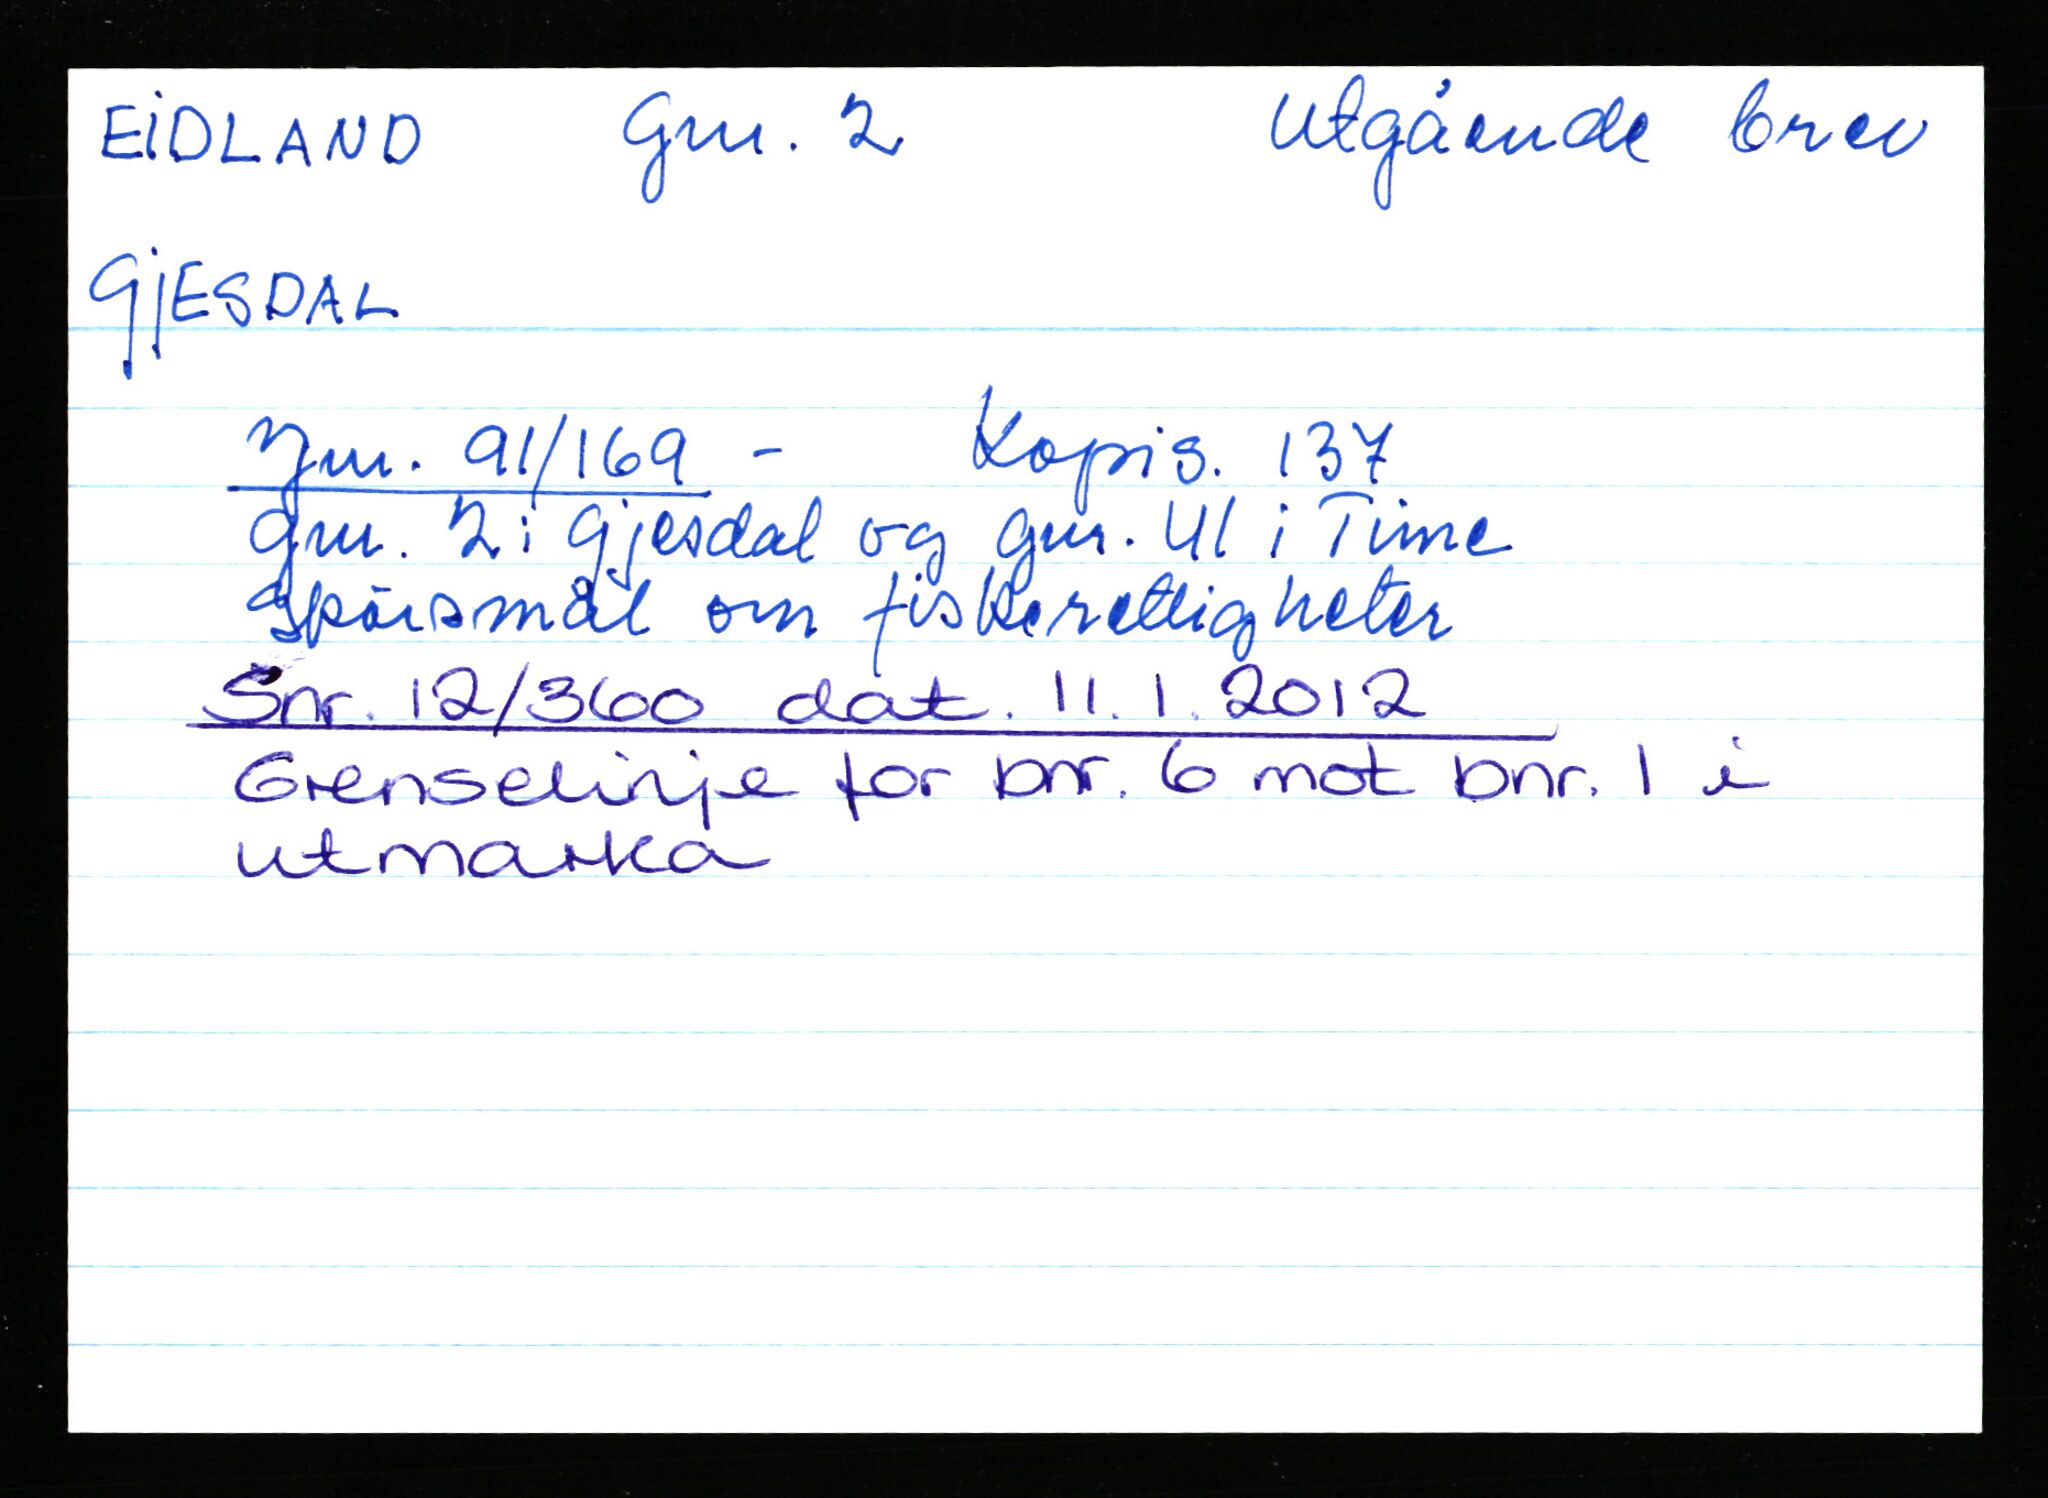 EIDLAND Gnr. 2 Utgående brev
GJESDAL
Jnr. 91/169 - Kopis. 137
gnr. 2 i Gjesdal og gnr. 41 i Time
spörsmål om fiskerettigheter
Snr. 12/360 dat. 11.1.2012
Grenselinje for bnr. 6 mot bnr. 1 i
utmarka